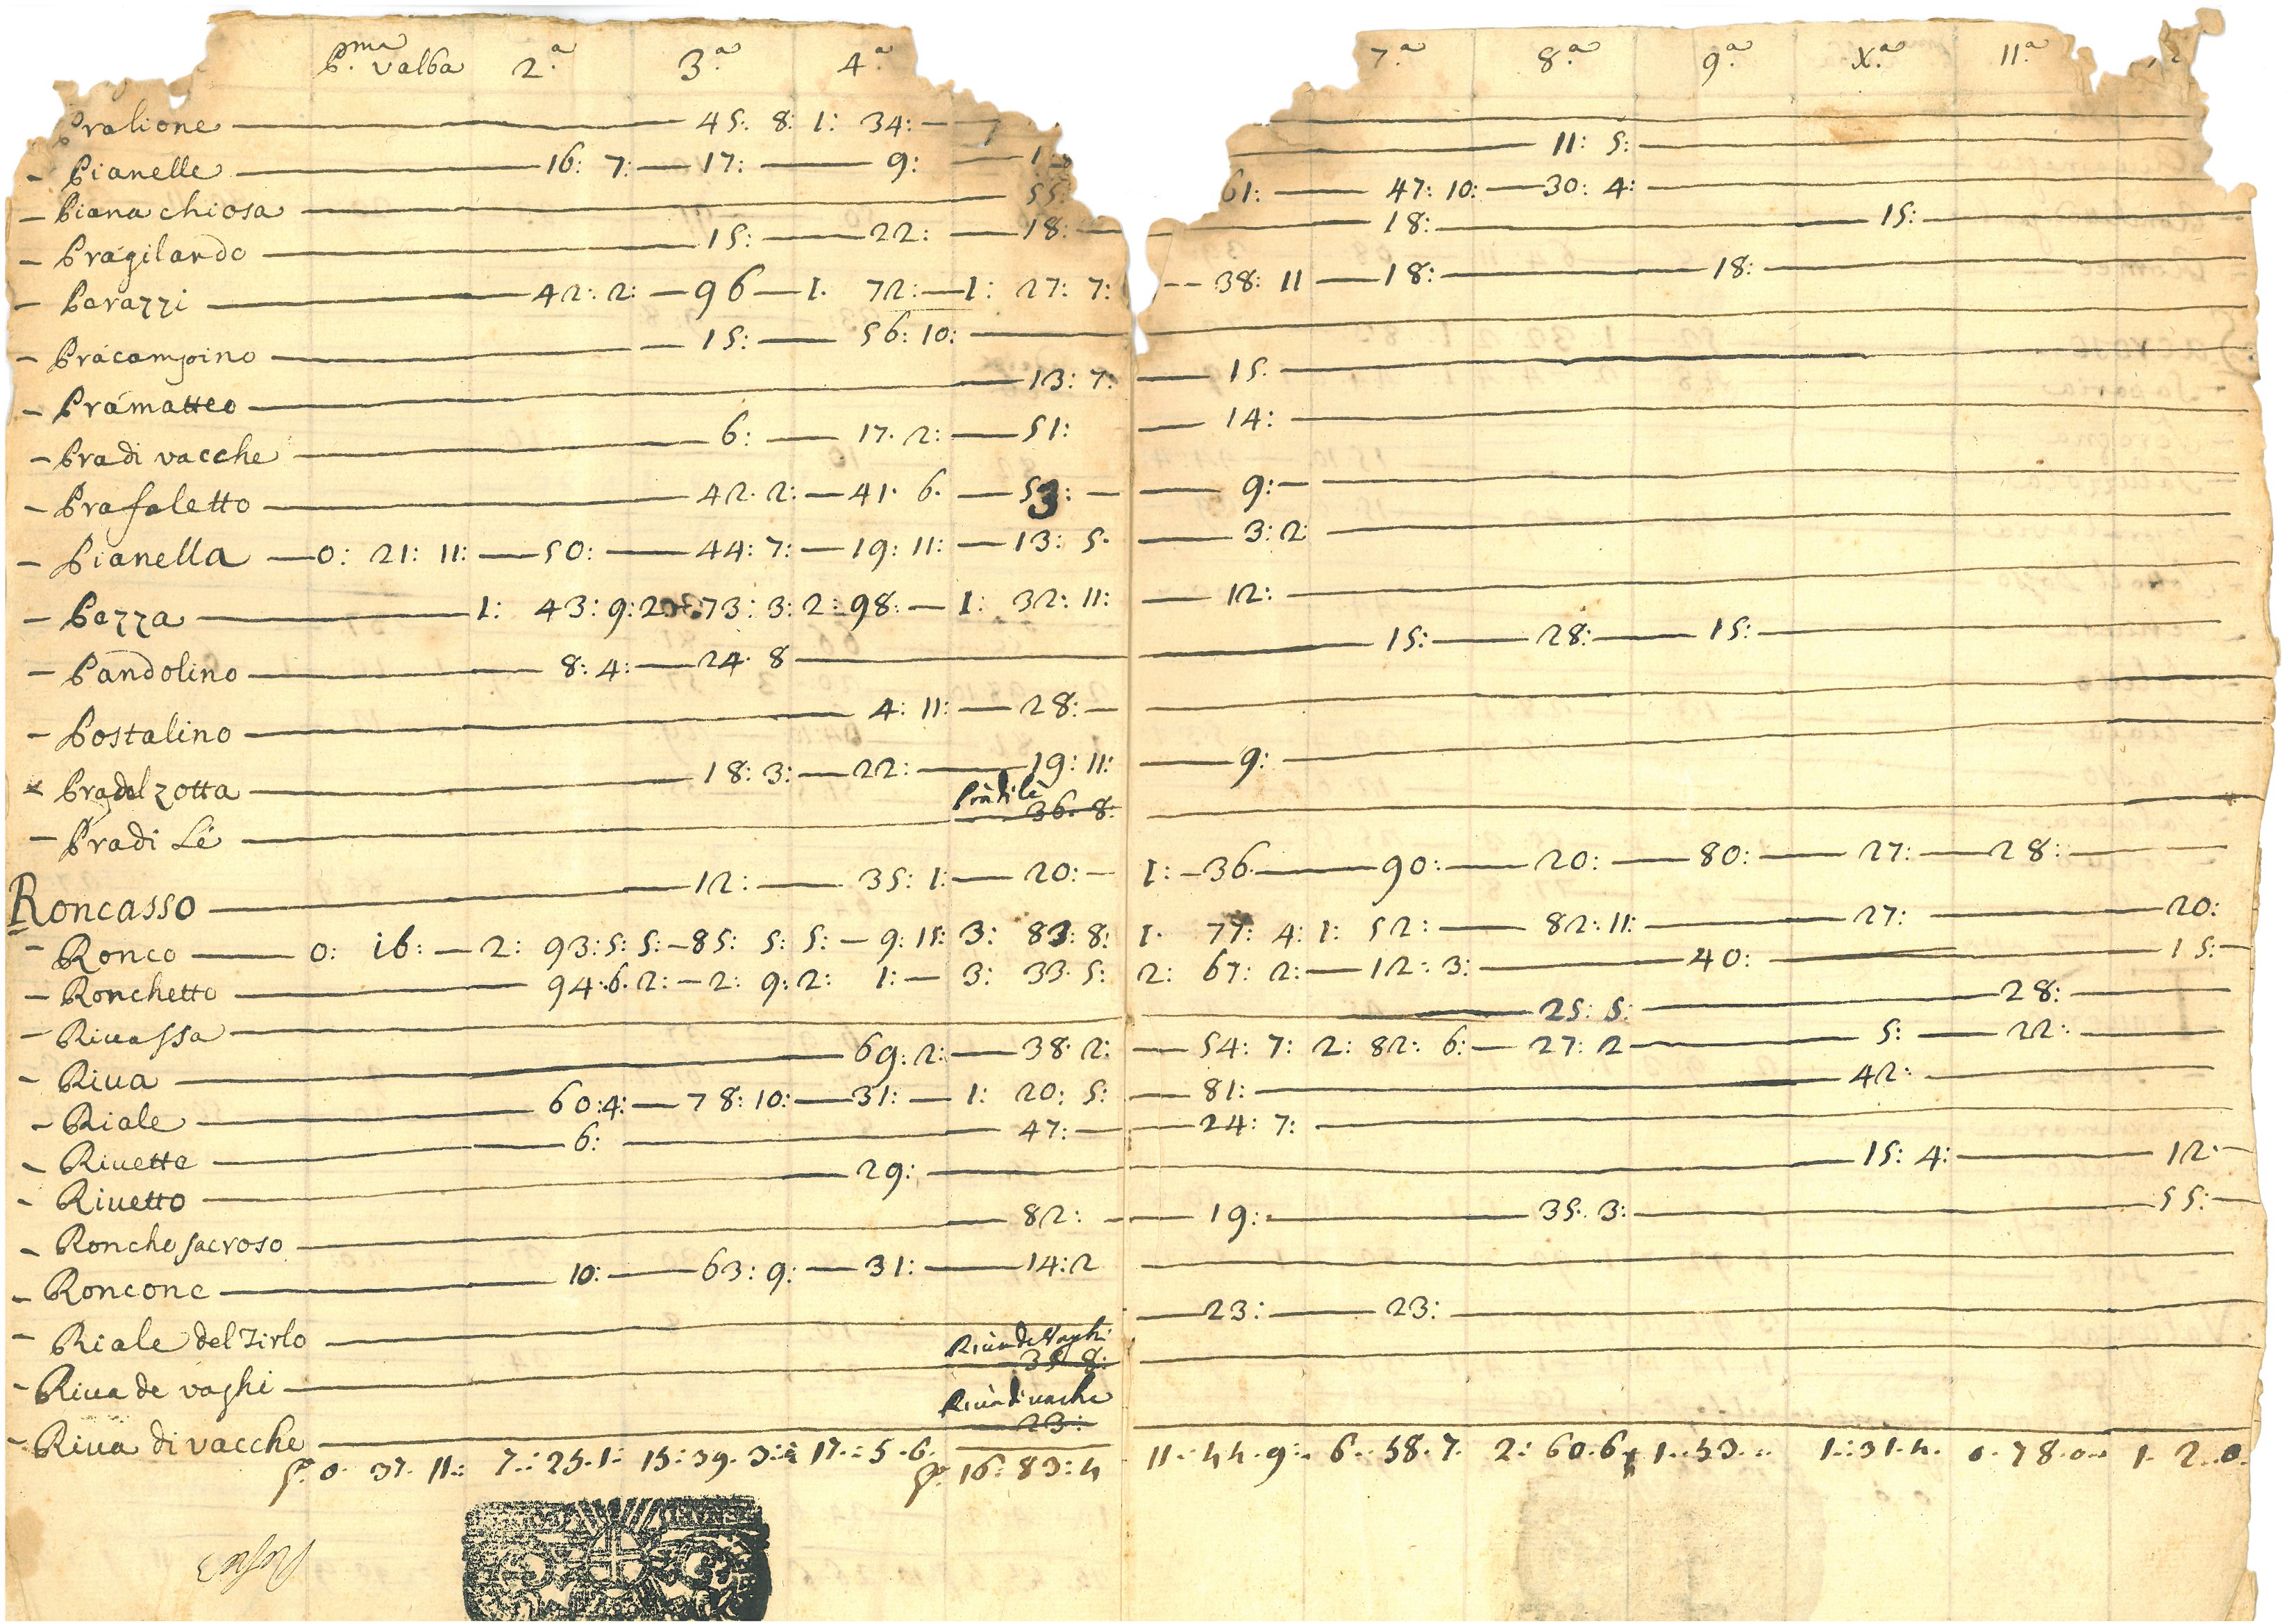 P.ma valba 2.a 3.a 4.a 7.a 8.a 9.a X.a 11.a
Pralione 45: 8: 1: 34: 11: 5:
- Pianelle 16: 7: 17: 9: 1: 61: 47: 10: 30: 4:
- Piana chiosa 55: 18: 15:
- Pragilardo 15: 22: 18: 38: 11 18: 18:
- Parazzi 42: 2: 96 1. 72: 1: 27: 7:
- Pracampino 15: 56: 10: 15.
- Pramatteo 13: 7: 14:
- Pradi vacche 6: 17. 2: 51:
- Prafaletto 42. 2: 41. 6. 53: 9:
- Pianella 0: 21: 11: 50: 44: 7: 19: 11: 13: 5. 3: 2:
- Pezza 1: 43: 9: 2 73: 3: 2: 98: 1: 32: 11: 12:
- Pandolino 8: 4: 24. 8 15: 28: 15:
- Postalino 4: 11: 28:
× Pradal zotta 18: 3: 22: 19: 11: 9:
- Pradi Lè Pradi lè 36. 8:
Roncasso 12: 35: 1: 20: 1: 36. 90: 20: 80: 27: 28:
- Ronco 0: 16: 2: 93: 5: 5: 85: 5: 5: 9: 11: 3: 83: 8: 1. 77: 4: 1: 52: 82: 11: 27: 20:
- Ronchetto 94. 6. 2: 2: 9: 2: 1: 3: 33. 5: 2: 67: 2: 12: 3: 40: 15:
- Riuassa 25: 5: 28:
- Riua 69: 2: 38. 2: 54: 7: 2: 82: 6: 27: 2 5: 22:
- Riale 60: 4: 78: 10: 31: 1: 20: 5: 81: 42:
- Riuette 6: 47: 24: 7:
- Riuetto 29: 15: 4: 12.
- Roncho sacroso 82: 19: 35. 3: 55:
- Roncone 10: 63: 9: 31: 14: 2
- Riale del Tirlo 23: 23:
- Riua de vaghi Riua de Vaghi 35 8:
- Riua di vacche Riua di vache 23:
0. 37. 11: 7: 25. 1: 15: 39. 3: 17: 5. 6. 16: 83: 4 11: 44. 9: 6. 58. 7. 2: 60. 6 1. 53. 1: 31. 4. 0. 78. 0. 1. 2. 0.